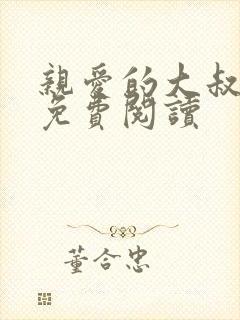 親愛的大叔
免費閱讀
董合忠